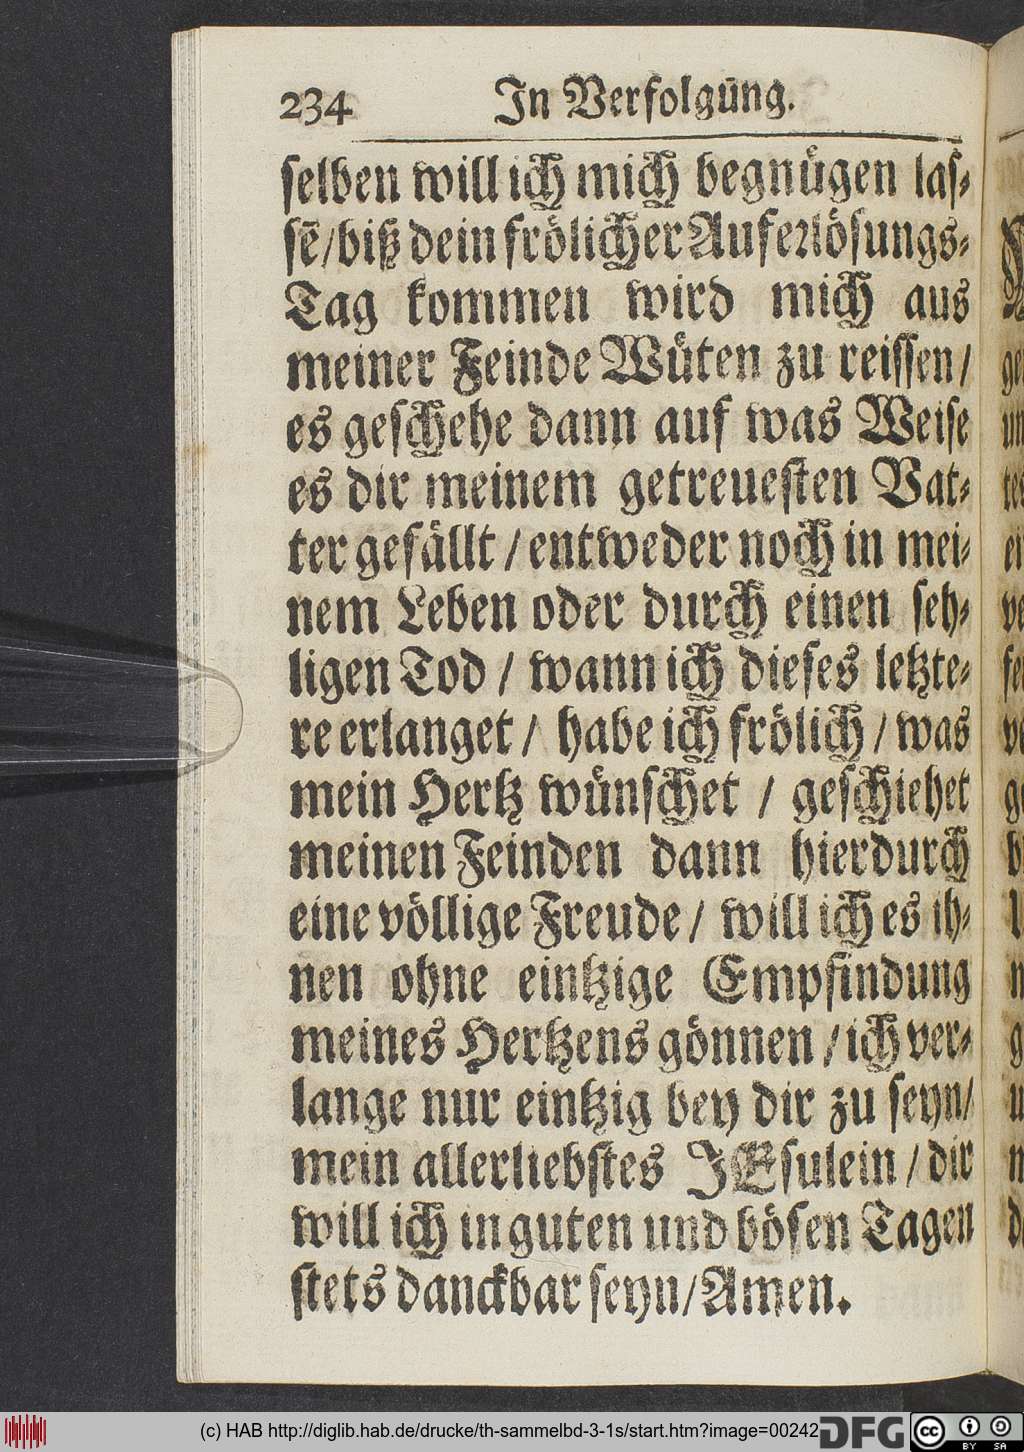 234 In Verfolgūng.
selben will ich mich begnügen las-
sē/biß dein frölicher Auferlösungs-
Tag kommen wird mich aus
meiner Feinde Wüten zu reissen/
es geschehe dann auf was Weise
es dir meinem getreuesten Vat-
ter gefällt / entweder noch in mei-
nem Leben oder durch einen seh-
ligen Tod / wann ich dieses letzte-
re erlanget / habe ich frölich / was
mein Hertz wünschet / geschiehet
meinen Feinden dann hierdurch
eine völlige Freude / will ich es ih-
nen ohne eintzige Empfindung
meines Hertzens gönnen / ich ver-
lange nur eintzig bey dir zu seyn/
mein allerliebstes JEsulein / dir
will ich in guten und bösen Tagen
stets danckbar seyn/Amen.
(c) HAB http://diglib.hab.de/drucke/th-sammelbd-3-1s/start.htm?image=00242
DFG
cc BY SA